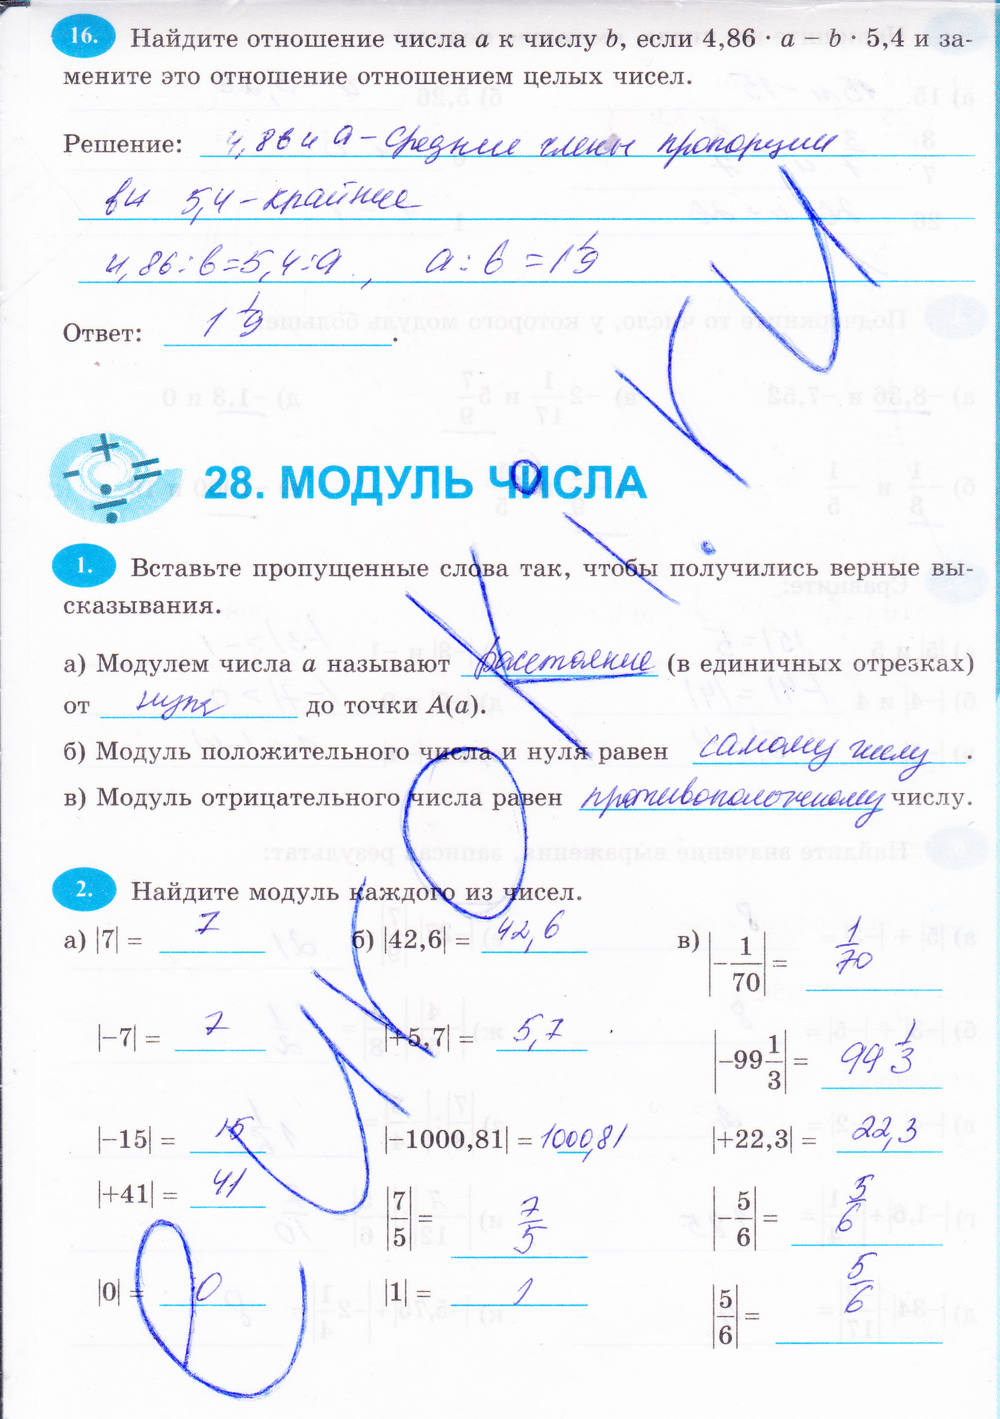 16. Найдите отношение числа a к числу b, если 4,86 · a − b · 5,4 и за-
мените это отношение отношением целых чисел.
Решение: 4,86 и a – средние члены пропорции
b и 5,4 – крайние
4,86 : b = 5,4 : a, a : b = 1 1/9
Ответ: 1 1/9.
28. МОДУЛЬ ЧИСЛА
1. Вставьте пропущенные слова так, чтобы получились верные вы-
сказывания.
а) Модулем числа a называют расстояние (в единичных отрезках)
от нуля до точки A(a).
б) Модуль положительного числа и нуля равен самому числу.
в) Модуль отрицательного числа равен противоположному числу.
2. Найдите модуль каждого из чисел.
а) |7| = 7 б) |42,6| = 42,6 в) |−1/70| = 1/70
|−7| = 7 |+5,7| = 5,7 |−99 1/3| = 99 1/3
|−15| = 15 |+1000,81| = 1000,81 |+22,3| = 22,3
|+41| = 41 |7/5| = 7/5 |−5/6| = 5/6
|0| = 0 |1| = 1 |5/6| = 5/6